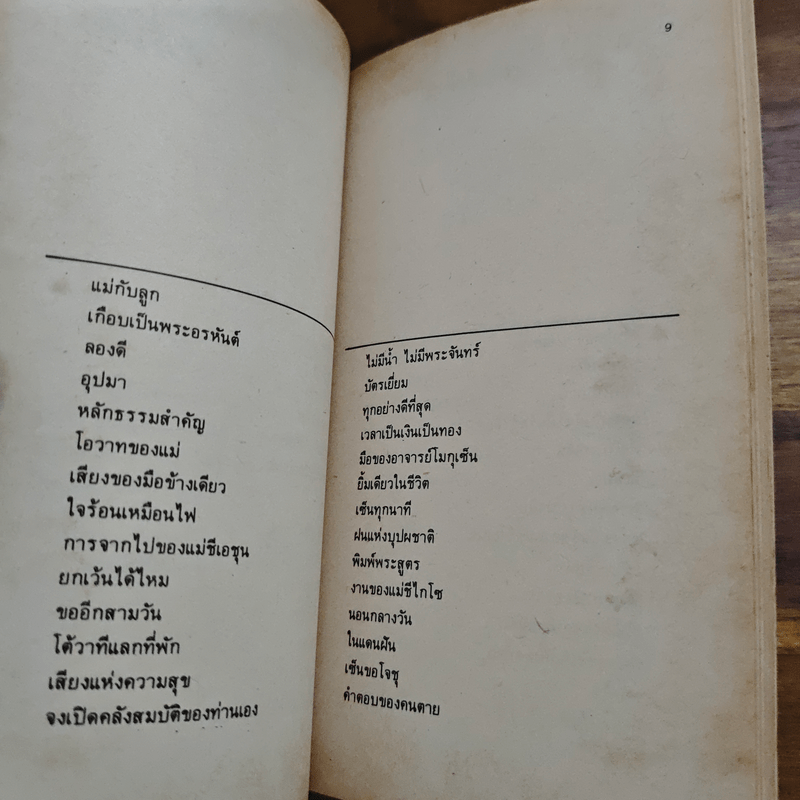 แม่กับลูก
เกือบเป็นพระอรหันต์
ลองดี
อุปมา
หลักธรรมสำคัญ
โอวาทของแม่
เสียงของมือข้างเดียว
ใจร้อนเหมือนไฟ
การจากไปของแม่ชีเอชุน
ยกเว้นได้ไหม
ขออีกสามวัน
โต้วาทีแลกที่พัก
เสียงแห่งความสุข
จงเปิดคลังสมบัติของท่านเอง
9
ไม่มีน้ำ ไม่มีพระจันทร์
บัตรเยี่ยม
ทุกอย่างดีที่สุด
เวลาเป็นเงินเป็นทอง
มือของอาจารย์โมกุเซ็น
ยิ้มเดียวในชีวิต
เซ็นทุกนาที
ฝนแห่งบุปผชาติ
พิมพ์พระสูตร
งานของแม่ชีไกโซ
นอนกลางวัน
ในแดนฝัน
เซ็นขอโจชุ
คำตอบของคนตาย